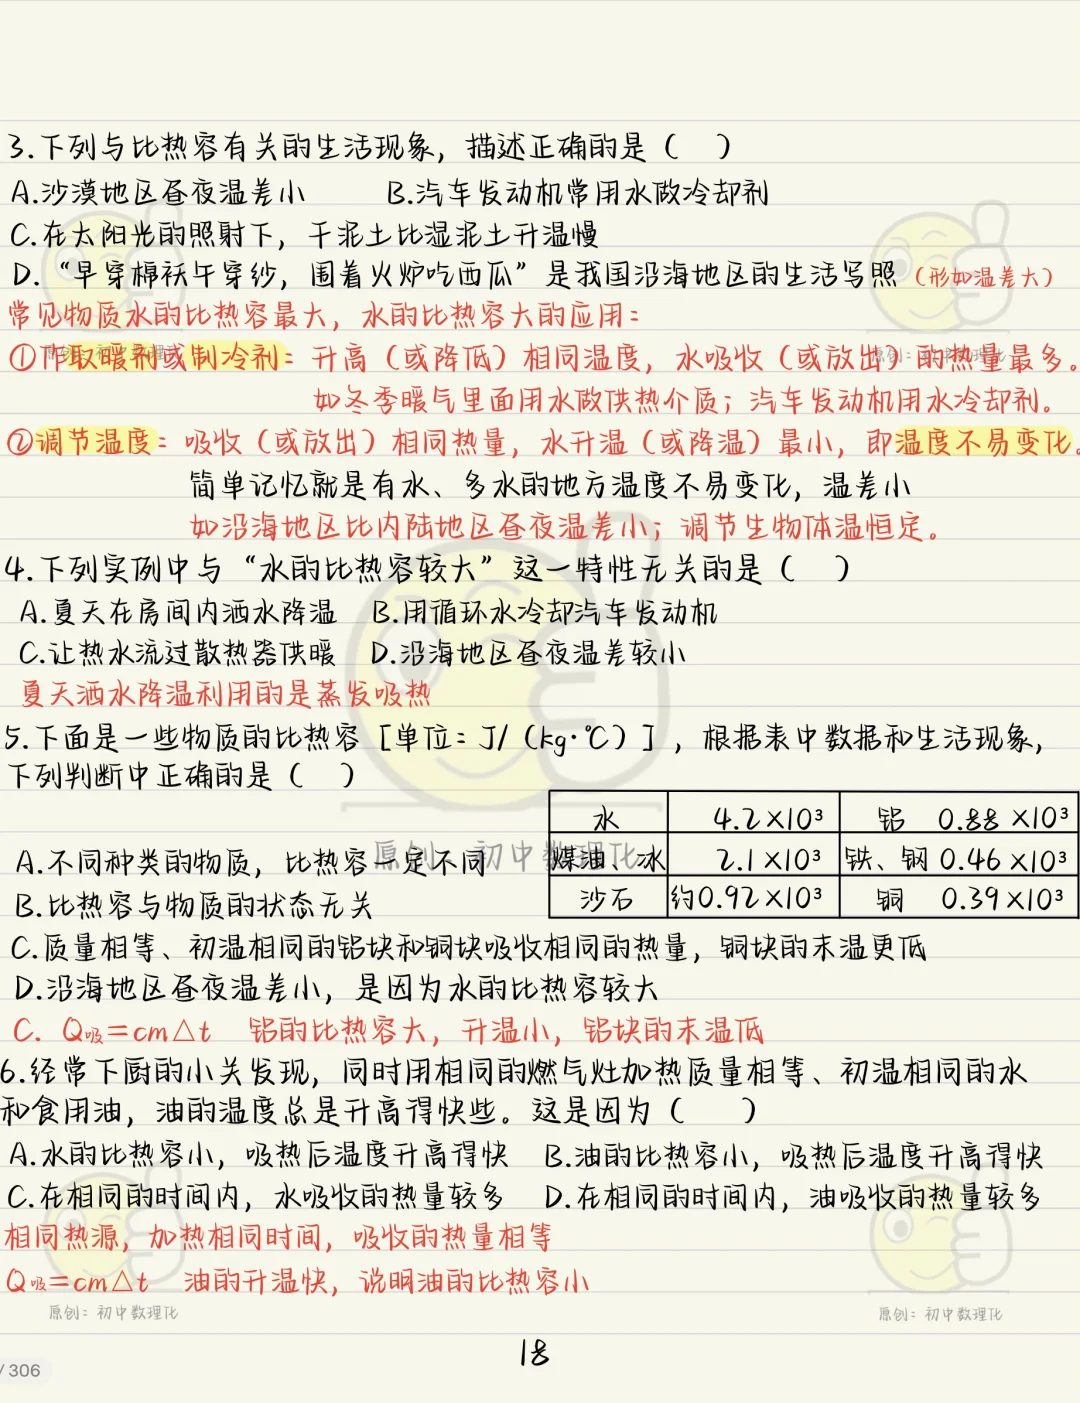 3.下列与比热容有关的生活现象，描述正确的是（ ）
A.沙漠地区昼夜温差小 B.汽车发动机常用水做冷却剂
C.在太阳光的照射下，干泥土比湿泥土升温慢
D.“早穿棉袄午穿纱，围着火炉吃西瓜”是我国沿海地区的生活写照（形如温差大）
常见物质水的比热容最大，水的比热容大的应用：
①作取暖剂或制冷剂：升高（或降低）相同温度，水吸收（或放出）的热量最多。
如冬季暖气里面用水做供热介质；汽车发动机用水冷却剂。
②调节温度：吸收（或放出）相同热量，水升温（或降温）最小，即温度不易变化。
简单记忆就是有水、多水的地方温度不易变化，温差小
如沿海地区比内陆地区昼夜温差小；调节生物体温恒定。
4.下列实例中与“水的比热容较大”这一特性无关的是（ ）
A.夏天在房间内洒水降温 B.用循环水冷却汽车发动机
C.让热水流过散热器供暖 D.沿海地区昼夜温差较小
夏天洒水降温利用的是蒸发吸热
5.下面是一些物质的比热容[单位：J/（kg·℃）]，根据表中数据和生活现象，
下列判断中正确的是（ ）
水 4.2×10³ 铝 0.88×10³
煤油、冰 2.1×10³ 铁、钢 0.46×10³
沙石 约0.92×10³ 铜 0.39×10³
A.不同种类的物质，比热容一定不同
B.比热容与物质的状态无关
C.质量相等、初温相同的铝块和铜块吸收相同的热量，铜块的末温更低
D.沿海地区昼夜温差小，是因为水的比热容较大
C. Q吸=cm△t 铝的比热容大，升温小，铝块的末温低
6.经常下厨的小关发现，同时用相同的燃气灶加热质量相等、初温相同的水
和食用油，油的温度总是升高得快些。这是因为（ ）
A.水的比热容小，吸热后温度升高得快 B.油的比热容小，吸热后温度升高得快
C.在相同的时间内，水吸收的热量较多 D.在相同的时间内，油吸收的热量较多
相同热源，加热相同时间，吸收的热量相等
Q吸=cm△t 油的升温快，说明油的比热容小
原创：初中数理化 原创：初中数理化
18
/ 306